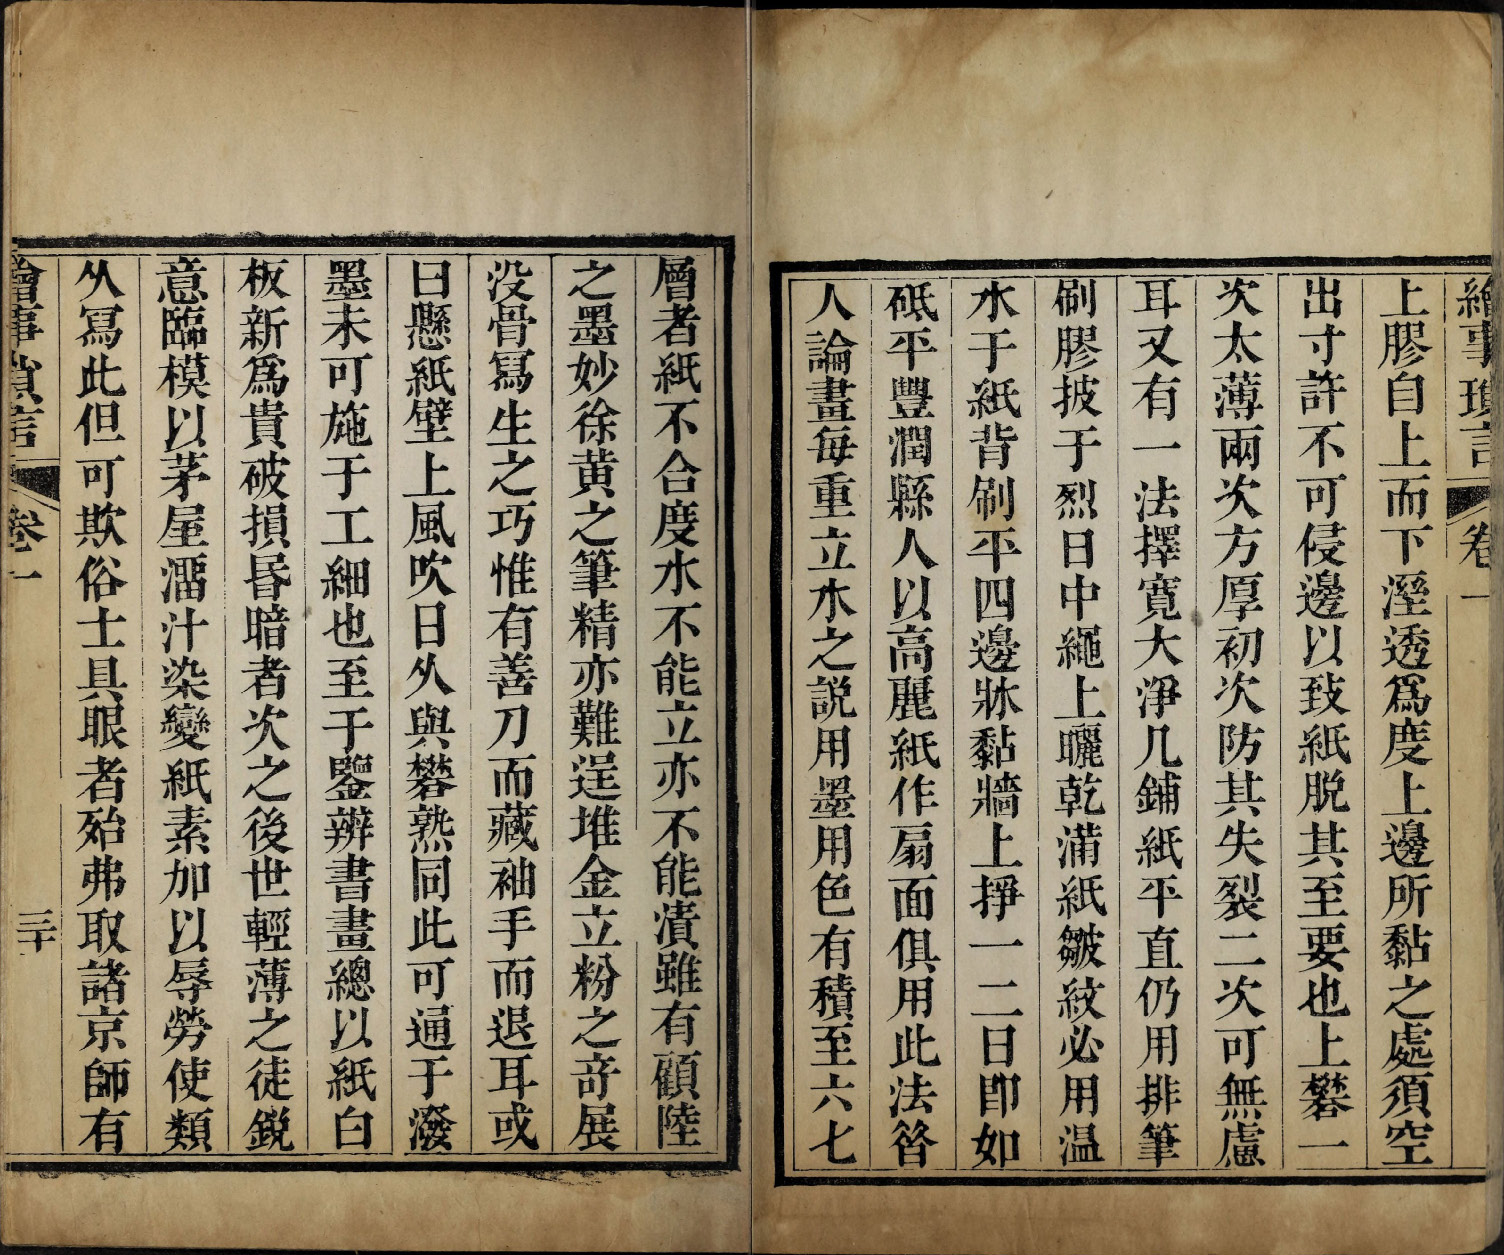 繪事瑣言 卷一
上膠自上而下溼透爲度上邊所黏之處須空
出寸許不可侵邊以致紙脱其至要也上礬一
次太薄兩次方厚初次防其失裂二次可無慮
耳又有一法擇寬大淨几鋪紙平直仍用排筆
刷膠披于烈日中繩上曬乾滿紙皺紋必用温
水于紙背刷平四邊牀黏牆上掙一二日即如
砥平豐潤縣人以高麗紙作扇面俱用此法昝
人論畫每重立水之説用墨用色有積至六七
層者紙不合度水不能立亦不能漬雖有顧陸
之墨妙徐黄之筆精亦難逞堆金立粉之竒展
没骨冩生之巧惟有善刀而藏袖手而退耳或
曰懸紙壁上風吹日久與礬熟同此可通于潑
墨未可施于工細也至于鑒辨書畫總以紙白
板新爲貴破損昬暗者次之後世輕薄之徒鋭
意臨模以茅屋溜汁染變紙素加以辱勞使類
久冩此但可欺俗士具眼者殆弗取諸京師有
繪事瑣言 卷一 三十